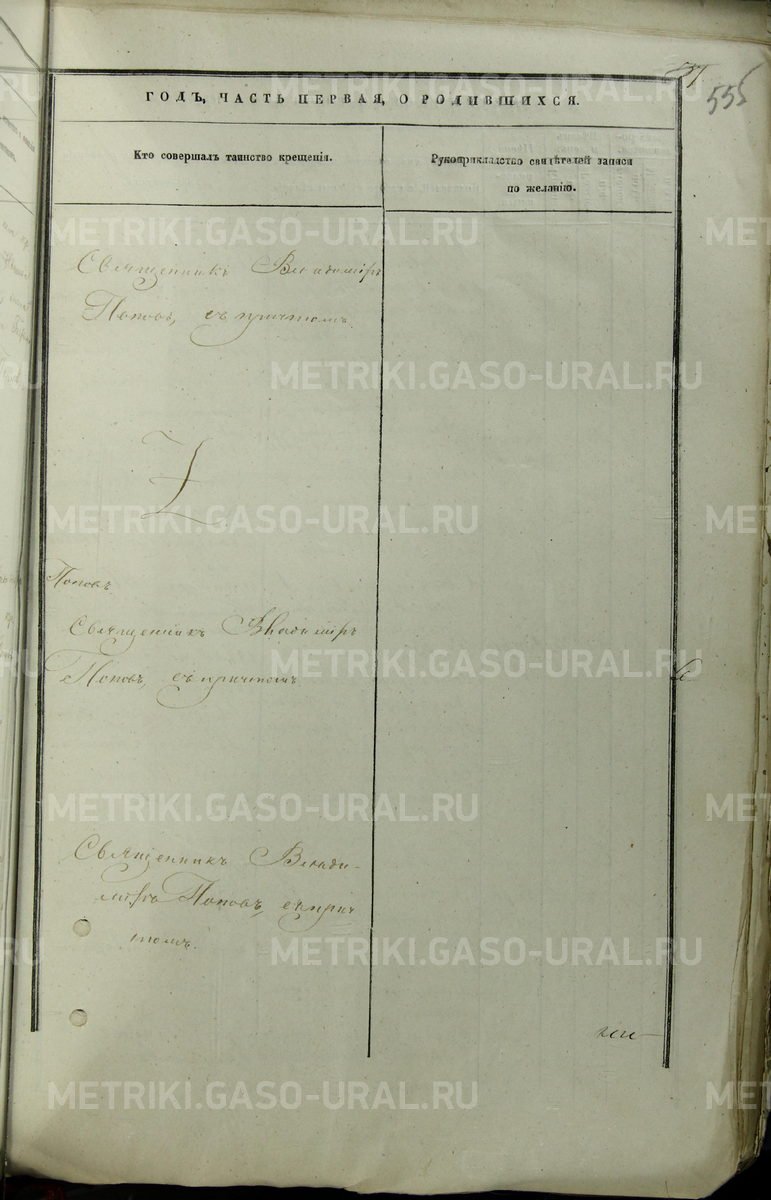 555
ГОДЪ, ЧАСТЬ ПЕРВАЯ, О РОДИВШИХСЯ.
Кто совершалъ таинство крещенія.
Рукоприкладство свидѣтелей записи
по желанію.
Священникъ Владиміръ
Поповъ, съ причтомъ.
Поповъ
Священникъ Владиміръ
Поповъ, съ причтомъ.
Священникъ Влади-
міръ Поповъ, съ прич
томъ.
METRIKI.GASO-URAL.RU